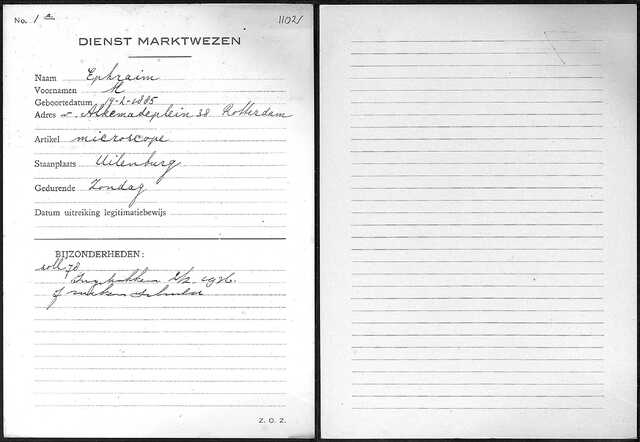 No. 1 a 1102/
DIENST MARKTWEZEN
Naam Ephraim
Voornamen M
Geboortedatum 19-2-1885
Adres v. Alkemadeplein 38 Rotterdam
Artikel microscope
Staanplaats Uilenburg
Gedurende Zondag
Datum uitreiking legitimatiebewijs
BIJZONDERHEDEN:
Ingetrokken
Z. O. Z.